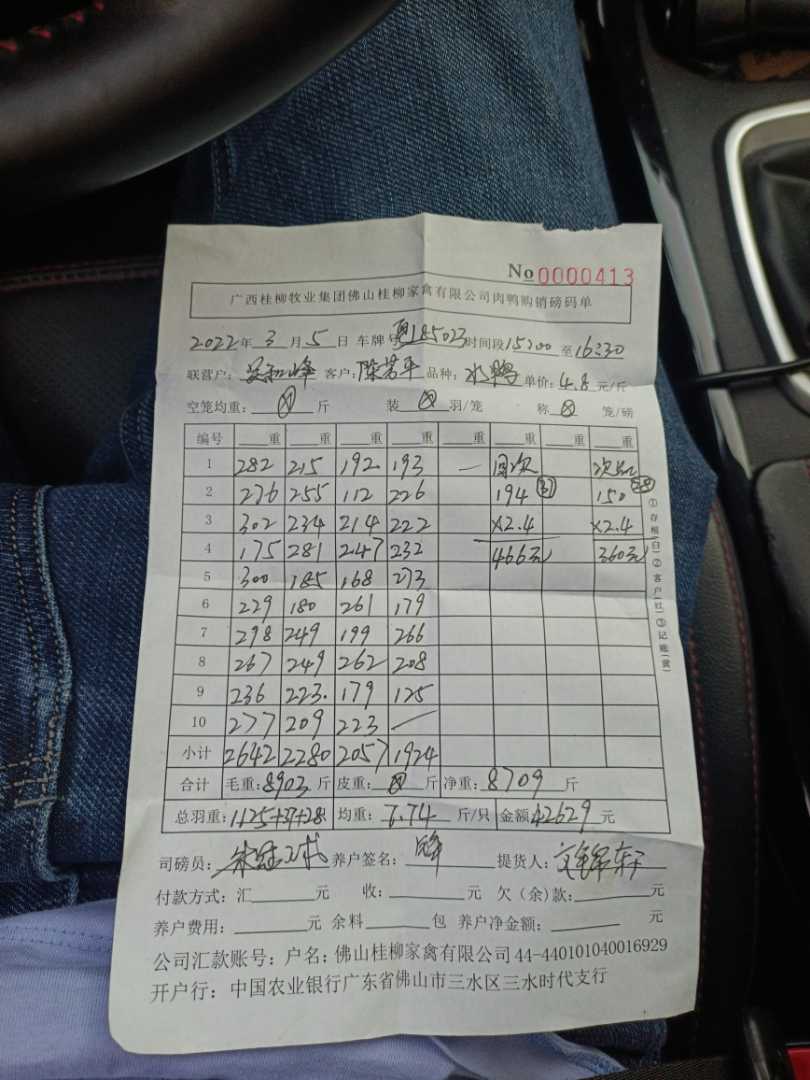 No 0000413
广西桂柳牧业集团佛山桂柳家禽有限公司肉鸭购销磅码单
2022年 3 月 5 日 车牌号 粤185023 时间段 15:00 至 16:30
联营户: 客户: 陈若平 品种: 水鸭 单价: 4.8 元/斤
空笼均重: 斤 装 羽/笼 称 笼/磅
编号 重 重 重 重 重 重 重 重
1 282 215 192 193 — 次品
2 276 255 112 226 194 (37) 150 (28)
3 302 234 214 222 ×2.4 ×2.4
4 175 281 247 232 466元 360元
5 300 185 168 273
6 229 180 261 179
7 298 249 199 266
8 267 249 262 208
9 236 223. 179 125
10 277 209 223 —
小计 2642 2280 2057 1924
合计 毛重: 8903 斤 皮重: 斤 净重: 8709 斤
总羽重: 1125+37+28 均重: 7.74 斤/只 金额 42629 元
司磅员: 养户签名: 峰 提货人:
付款方式: 汇 元 收: 元 欠(余)款: 元
养户费用: 元 余料 包 养户净金额: 元
公司汇款账号: 户名: 佛山桂柳家禽有限公司 44-440101040016929
开户行: 中国农业银行广东省佛山市三水区三水时代支行
①存根(白)②客户(红)③记账(黄)